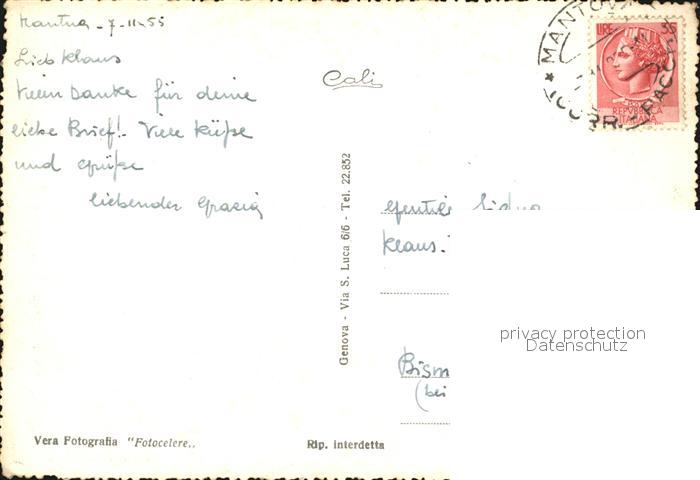 Mantua - 7-11-55
Lieb Klaus
Vielen Danke für deine
liebe Brief! Viele Küße
und Grüße
liebender Grazia
Cali
MANTOVA
CORR. PACCHI
LIRE
POSTE
REPVBBLICA
ITALIANA
Genova - Via S. Luca 6/6 - Tel. 22.852
Gentile
Klaus.
privacy protection
Datenschutz
Bism
(bei
Vera Fotografia "Fotocelere„
Rip. interdetta